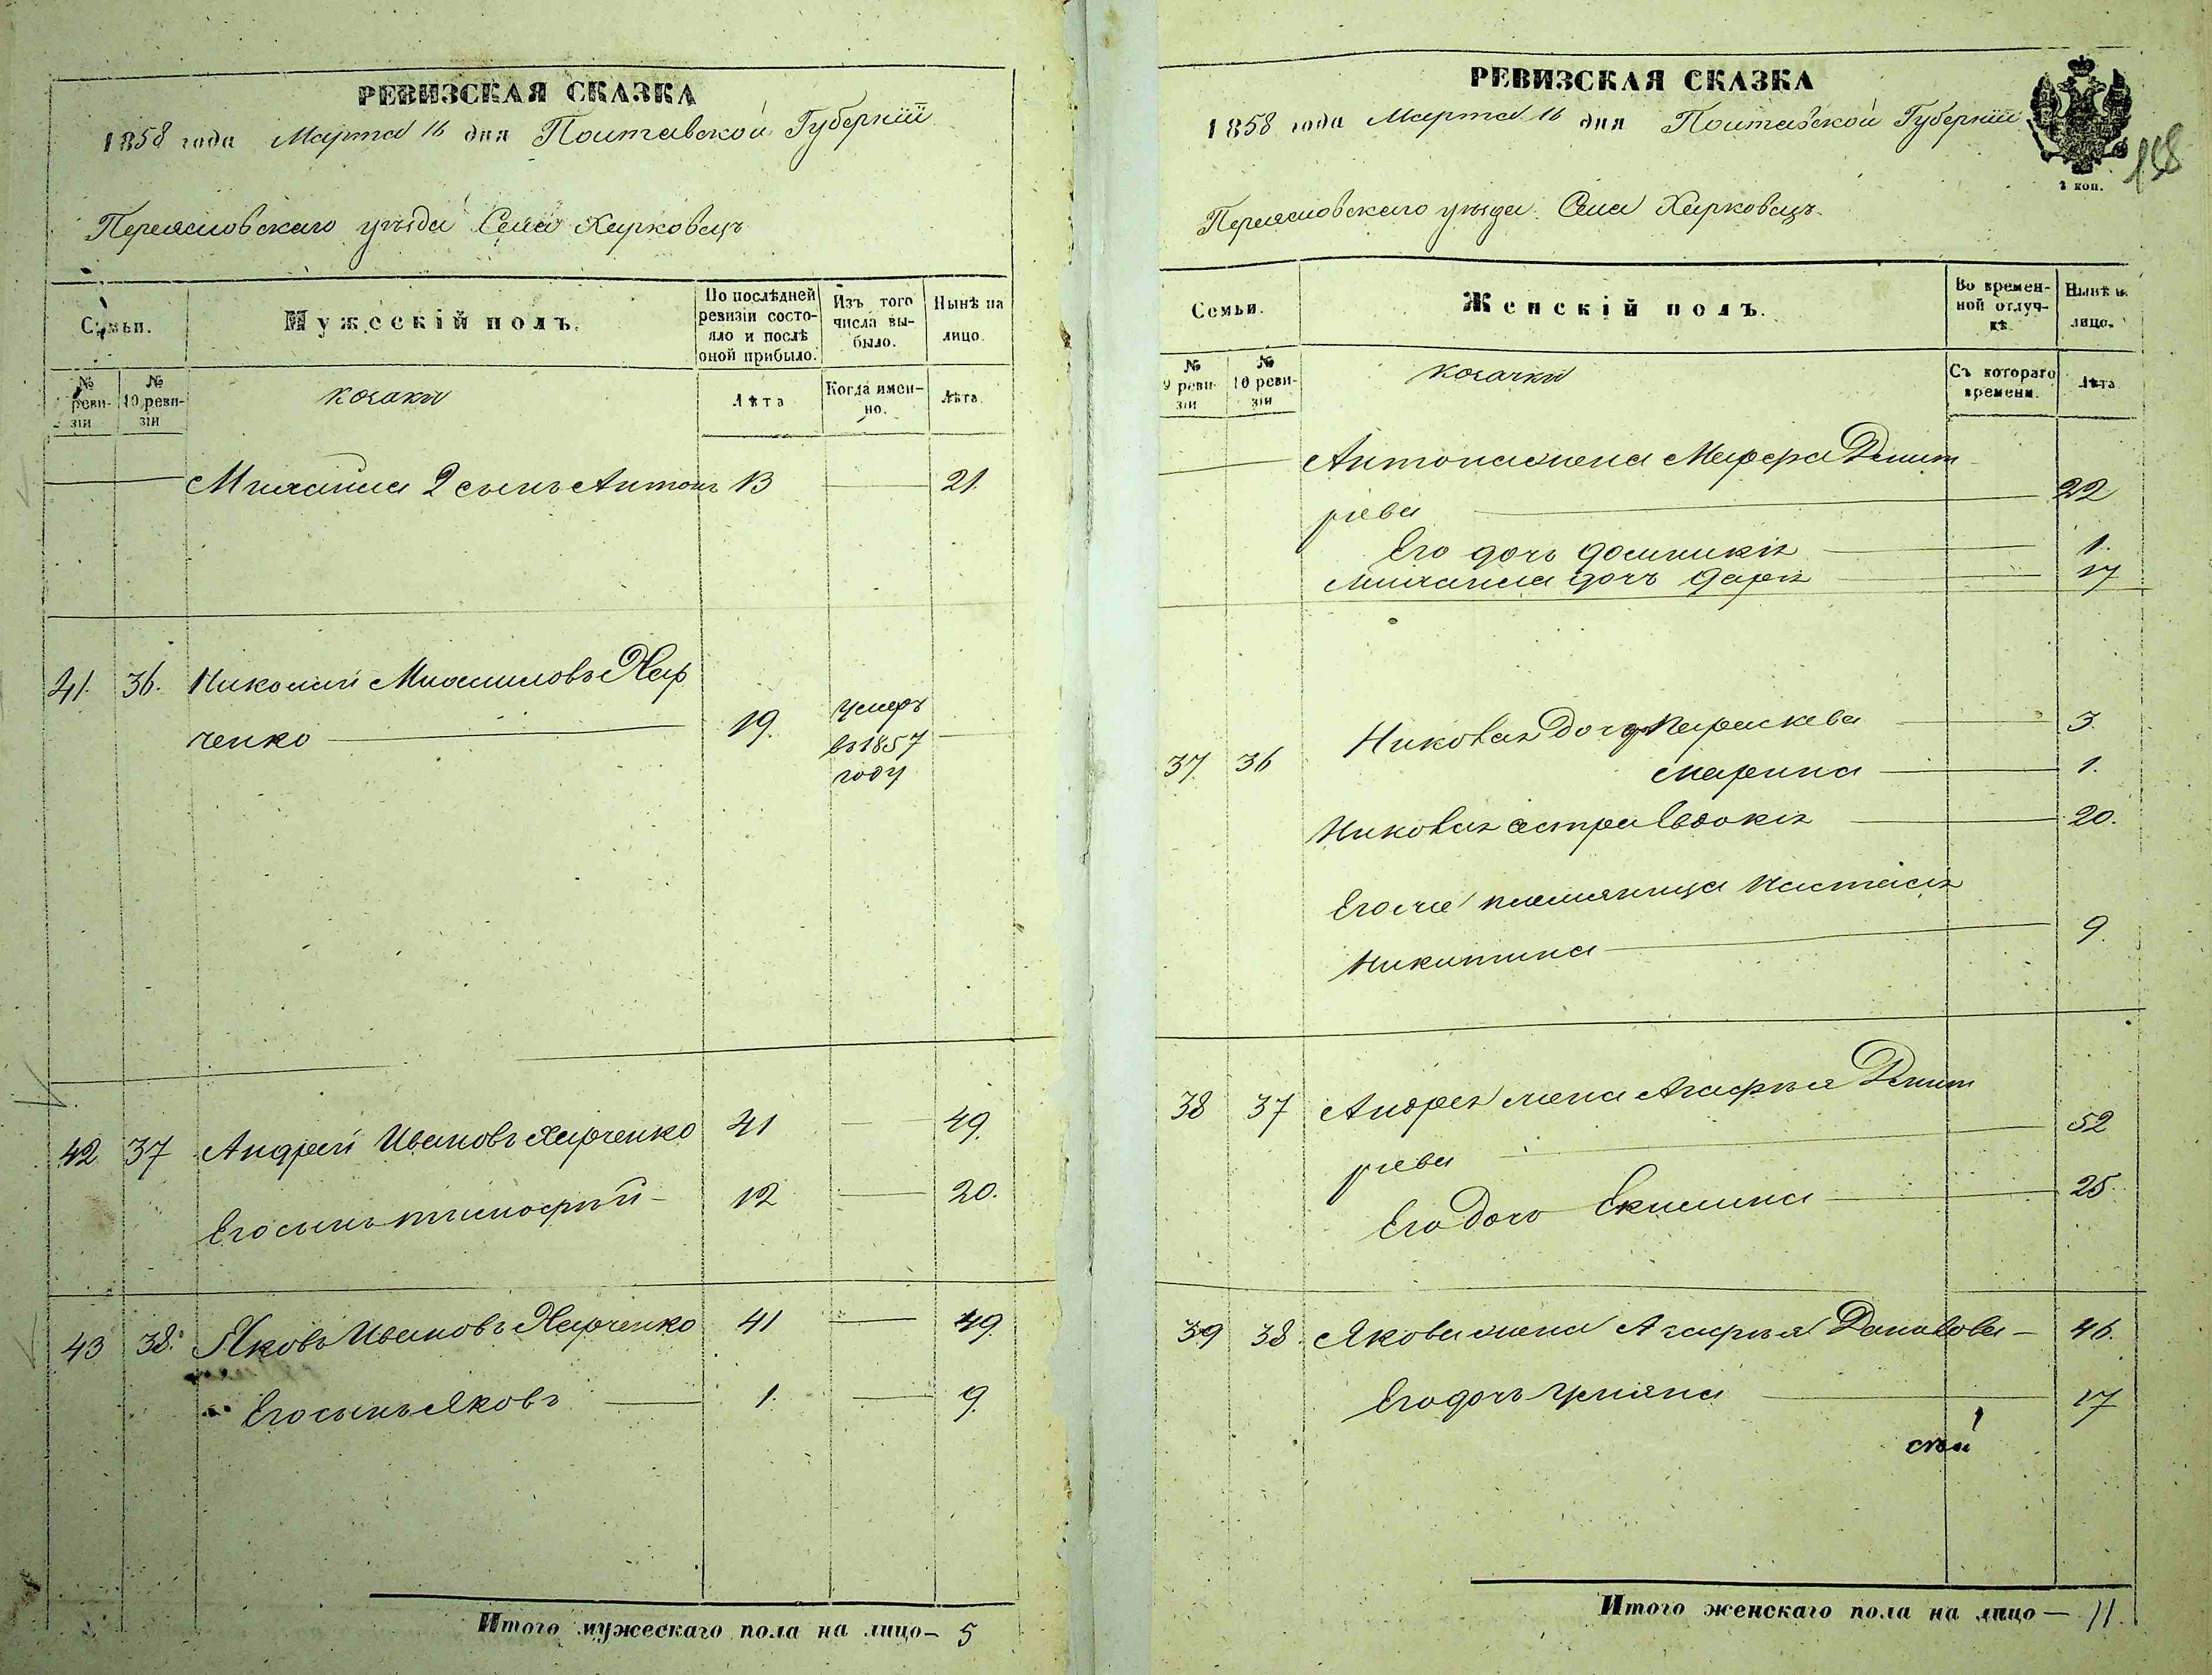 РЕВИЗСКАЯ СКАЗКА
1858 года Марта 16 дня Полтавской Губерніи
Переясловскаго уѣзда Села Харковецъ
Семьи.
Мужескій полъ.
По послѣдней ревизіи состояло и послѣ оной прибыло.
Изъ того числа выбыло.
Нынѣ на лицо.
№ ревизіи
№ 10 ревизіи
козаки
Лѣта
Когда именно.
Лѣта.
Михаила 2 сынъ Антонъ 13 21.
41. 36. Николай Михайловъ Хар
ченко 19. умеръ
въ 1857
году
42 37 Андрей Ивановъ Харченко 41 49.
Его сынъ Тимофѣй 12 20.
43 38. Яковъ Ивановъ Харченко 41 49.
Его сынъ Яковъ 1. 9.
Итого мужескаго пола на лицо— 5
РЕВИЗСКАЯ СКАЗКА
1858 года Марта 16 дня Полтавской Губерніи
2 коп.
158
Переясловскаго уѣзда Села Харковецъ.
Семьи.
Женскій полъ.
Во временной отлучкѣ.
Нынѣ на лицо.
№ 9 ревизіи
№ 10 ревизіи
козачки
Съ котораго времени.
Лѣта
Антона жена Марфа Дмит
ріева 22
Его дочь Домникія 1.
Михаила дочь Дарія 17
37 36 Николая Дочь Параскева 3.
Марина 1.
Николая сестра Евдокія 20.
Его же племянница Настасія
Никитина 9.
38 37 Андрея жена Агафья Дмит
ріева 52
Его Дочь Екилина 25.
39 38. Якова жена Агафья Данилова— 46.
Его дочь Уліяна 17
Итого женскаго пола на лицо— 11.